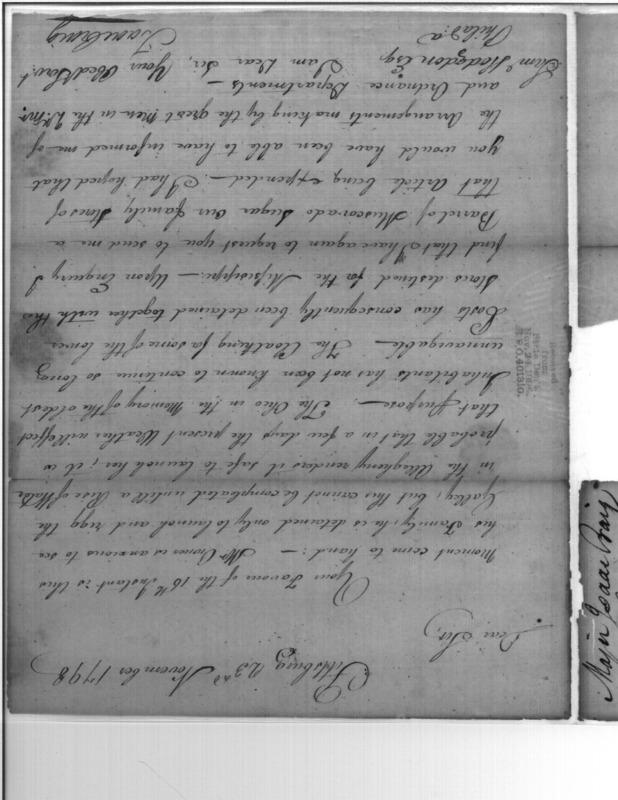 Pittsburg 23rd November 1798
Dear Sir,
Your Favour of the 16th Instant is this
moment come to hand :— Mr Connes is anxious to see
his Family, he is detained only to launch and rigg the
Galley, but this cannot be compleated untill a Rise of Water
in the Allegheny renders it safe to launch her; it is
probable that in a few days the present Weather will effect
that Purpose —. The Ohio in the Memory of the oldest
Inhabitants has not been known to continue so long
unnavigable — The Cloathing for some of the lower
Posts has consequently been detained together with the
Stores destined for the Missisippi —. Upon Enquiry I
find that I have again to request you to send me a
Barrel of Muscovado Sugar our family Stores of
that Article being expended —. I had hoped that
you would have been able to have informed me of
the Arrangements making by the great Men in the Qr. Mr.
and Ordnance Departments —
I am Dear Sir, Your Obed Serv.t
Isaac Craig
Saml Hodgdon Esq
Philad.a
Major Isaac Craig